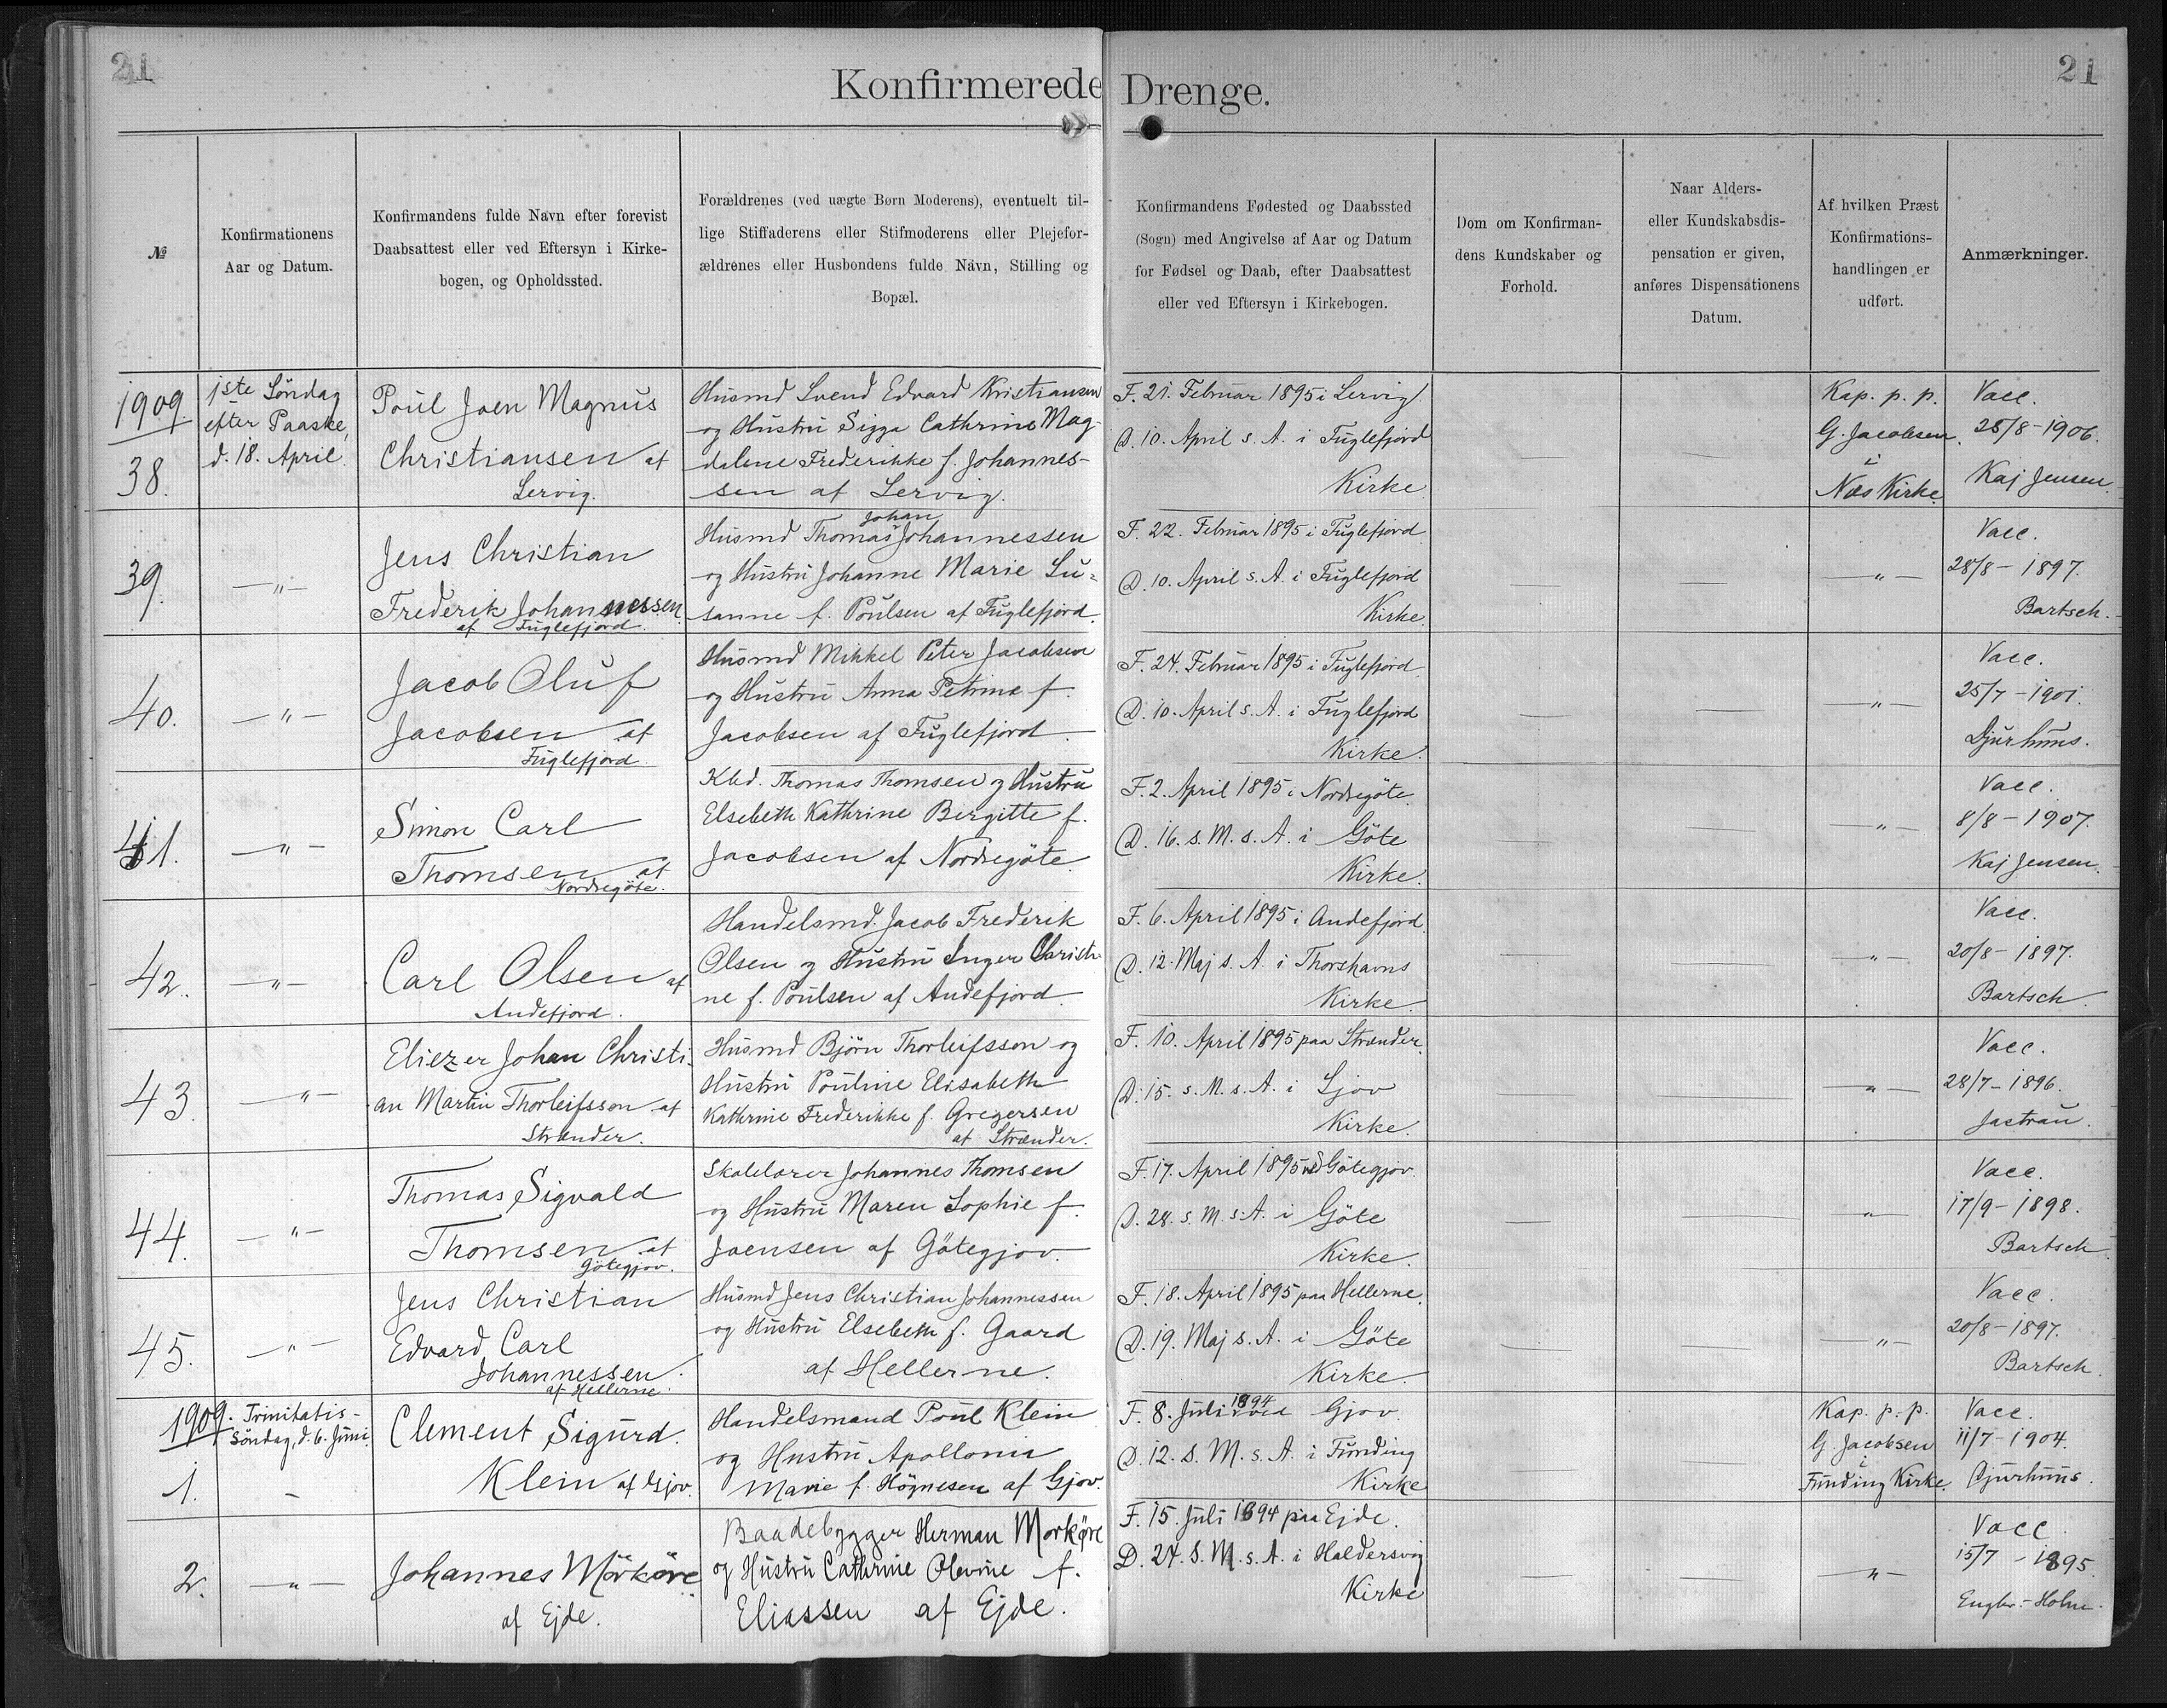 21
21
Konfirmerede Drenge.
№
Konfirmationens
Aar og Datum.
Konfirmandens fulde Navn efter forevist
Daabsattest eller ved Eftersyn i Kirke-
bogen, og Opholdssted.
Forældrenes (ved uægte Børn Moderens), eventuelt til-
lige Stiffaderens eller Stifmoderens eller Plejefor-
ældrenes eller Husbondens fulde Navn, Stilling og
Bopæl.
Konfirmandens Fødested og Daabssted
(Sogn) med Angivelse af Aar og Datum
for Fødsel og Daab, efter Daabsattest
eller ved Eftersyn i Kirkebogen.
Dom om Konfirman-
dens Kundskaber og
Forhold.
Naar Alders-
eller Kundskabsdis-
pensation er given,
anføres Dispensationens
Datum.
Af hvilken Præst
Konfirmations-
handlingen er
udført.
Anmærkninger.
1909.
38.
1ste Søndag
efter Paaske,
d. 18. April.
Poul Joen Magnus
Christiansen af
Lervig.
Husmd Svend Edvard Kristiansen
og Hustru Sigga Cathrine Mag-
dalene Frederikke f. Johannes-
sen af Lervig.
F. 21. Februar 1895 i Lervig
D. 10. April s. A. i Fuglefjord
Kirke.
—
—
Kap. p. p.
G. Jacobsen.
i
Næs Kirke.
Vacc.
28/8-1906.
Kaj Jensen.
39.
—"—
Jens Christian
Frederik Johannessen
af Fuglefjord.
Husmd Thomas Johan Johannessen
og Hustru Johanne Marie Su-
sanne f. Poulsen af Fuglefjord.
F. 22. Februar 1895 i Fuglefjord
D. 10. April s. A. i Fuglefjord
Kirke.
—
—
—"—
Vacc.
28/8 - 1897.
Bartsch.
40.
—"—
Jacob Oluf
Jacobsen af
Fuglefjord.
Husmd Mikkel Peter Jacobsen
og Hustru Anna Petrine f.
Jacobsen af Fuglefjord.
F. 24. Februar 1895 i Fuglefjord
D. 10. April s. A. i Fuglefjord
Kirke.
—
—
—"—
Vacc.
25/7 - 1901.
Djurhuus.
41.
—"—
Simon Carl
Thomsen af
Nordregöte.
Kbd. Thomas Thomsen og Hustru
Elsebeth Kathrine Bergitte f.
Jacobsen af Nordregöte.
F. 2. April 1895 i Nordregöte.
D. 16. s. M. s. A. i Göte
Kirke.
—
—
—"—
Vacc.
8/8 - 1907.
Kaj Jensen.
42.
—"—
Carl Olsen af
Andefjord.
Handelsmd. Jacob Frederik
Olsen og Hustru Inger Christi-
ne f. Poulsen af Andefjord.
F. 6. April 1895 i Andefjord.
D. 12. Maj s. A. i Thorshavns
Kirke.
—
—
—"—
Vacc.
20/8 - 1897.
Bartsch.
43.
—"—
Eliezer Johan Christi-
an Martin Thorleifsson af
Strænder.
Husmd Björn Thorleifsson og
Hustru Pouline Elisabeth
Kathrine Frederikke f. Gregersen
af Strænder.
F. 10. April 1895 paa Strænder.
D. 15. s. M. s. A. i Sjov
Kirke.
—
—
—"—
Vacc.
28/7 - 1896.
Jastrau.
44.
—"—
Thomas Sigvald
Thomsen af
Götegjov.
Skolelærer Johannes Thomsen
og Hustru Maren Sophie f.
Joensen af Götegjov.
F. 17. April 1895 ved Götegjov.
D. 28. s. M. s. A. i Göte
Kirke.
—
—
—"—
Vacc.
17/9 - 1898.
Bartsch
45.
—"—
Jens Christian
Edvard Carl
Johannessen
af Hellerne.
Husmd Jens Christian Johannessen
og Hustru Elsebeth f. Gaard
af Hellerne.
F. 18. April 1895 paa Hellerne.
D. 19. Maj s. A. i Göte
Kirke.
—
—
—"—
Vacc.
20/8 - 1897.
Bartsch.
1909.
1.
Trinitatis-
Søndag, d. 6. Juni.
Clement Sigurd
Klein af Gjov.
Handelsmand Poul Klein
og Hustru Apollonia
Marie f. Högnesen af Gjov.
F. 8. Juli 1894 ved Gjov.
D. 12. s. M. s. A. i Funding
Kirke
—
—
Kap. p. p.
G. Jacobsen
i
Funding Kirke.
Vacc.
11/7 - 1904.
Djurhuus.
2.
—"—
Johannes Mörköre
af Ejde.
Baadebygger Herman Morköre
og Hustru Cathrine Olevine f.
Eliassen af Ejde.
F. 15. Juli 1894 paa Ejde.
D. 24. S. M. s. A. i Haldersvig
Kirke
—
—
—"—
Vacc
15/7 - 1895.
Engbr.-Holm.